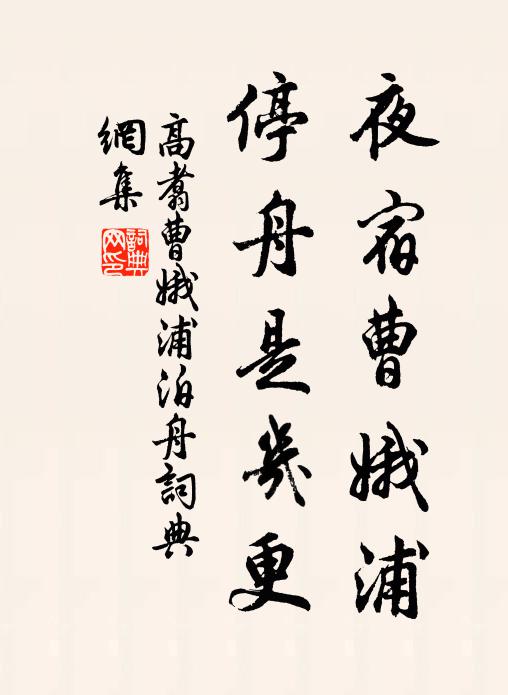 夜宿曹娥浦
停舟是幾更
高翥曹娥浦泊舟詞典
網集
詞典
网印